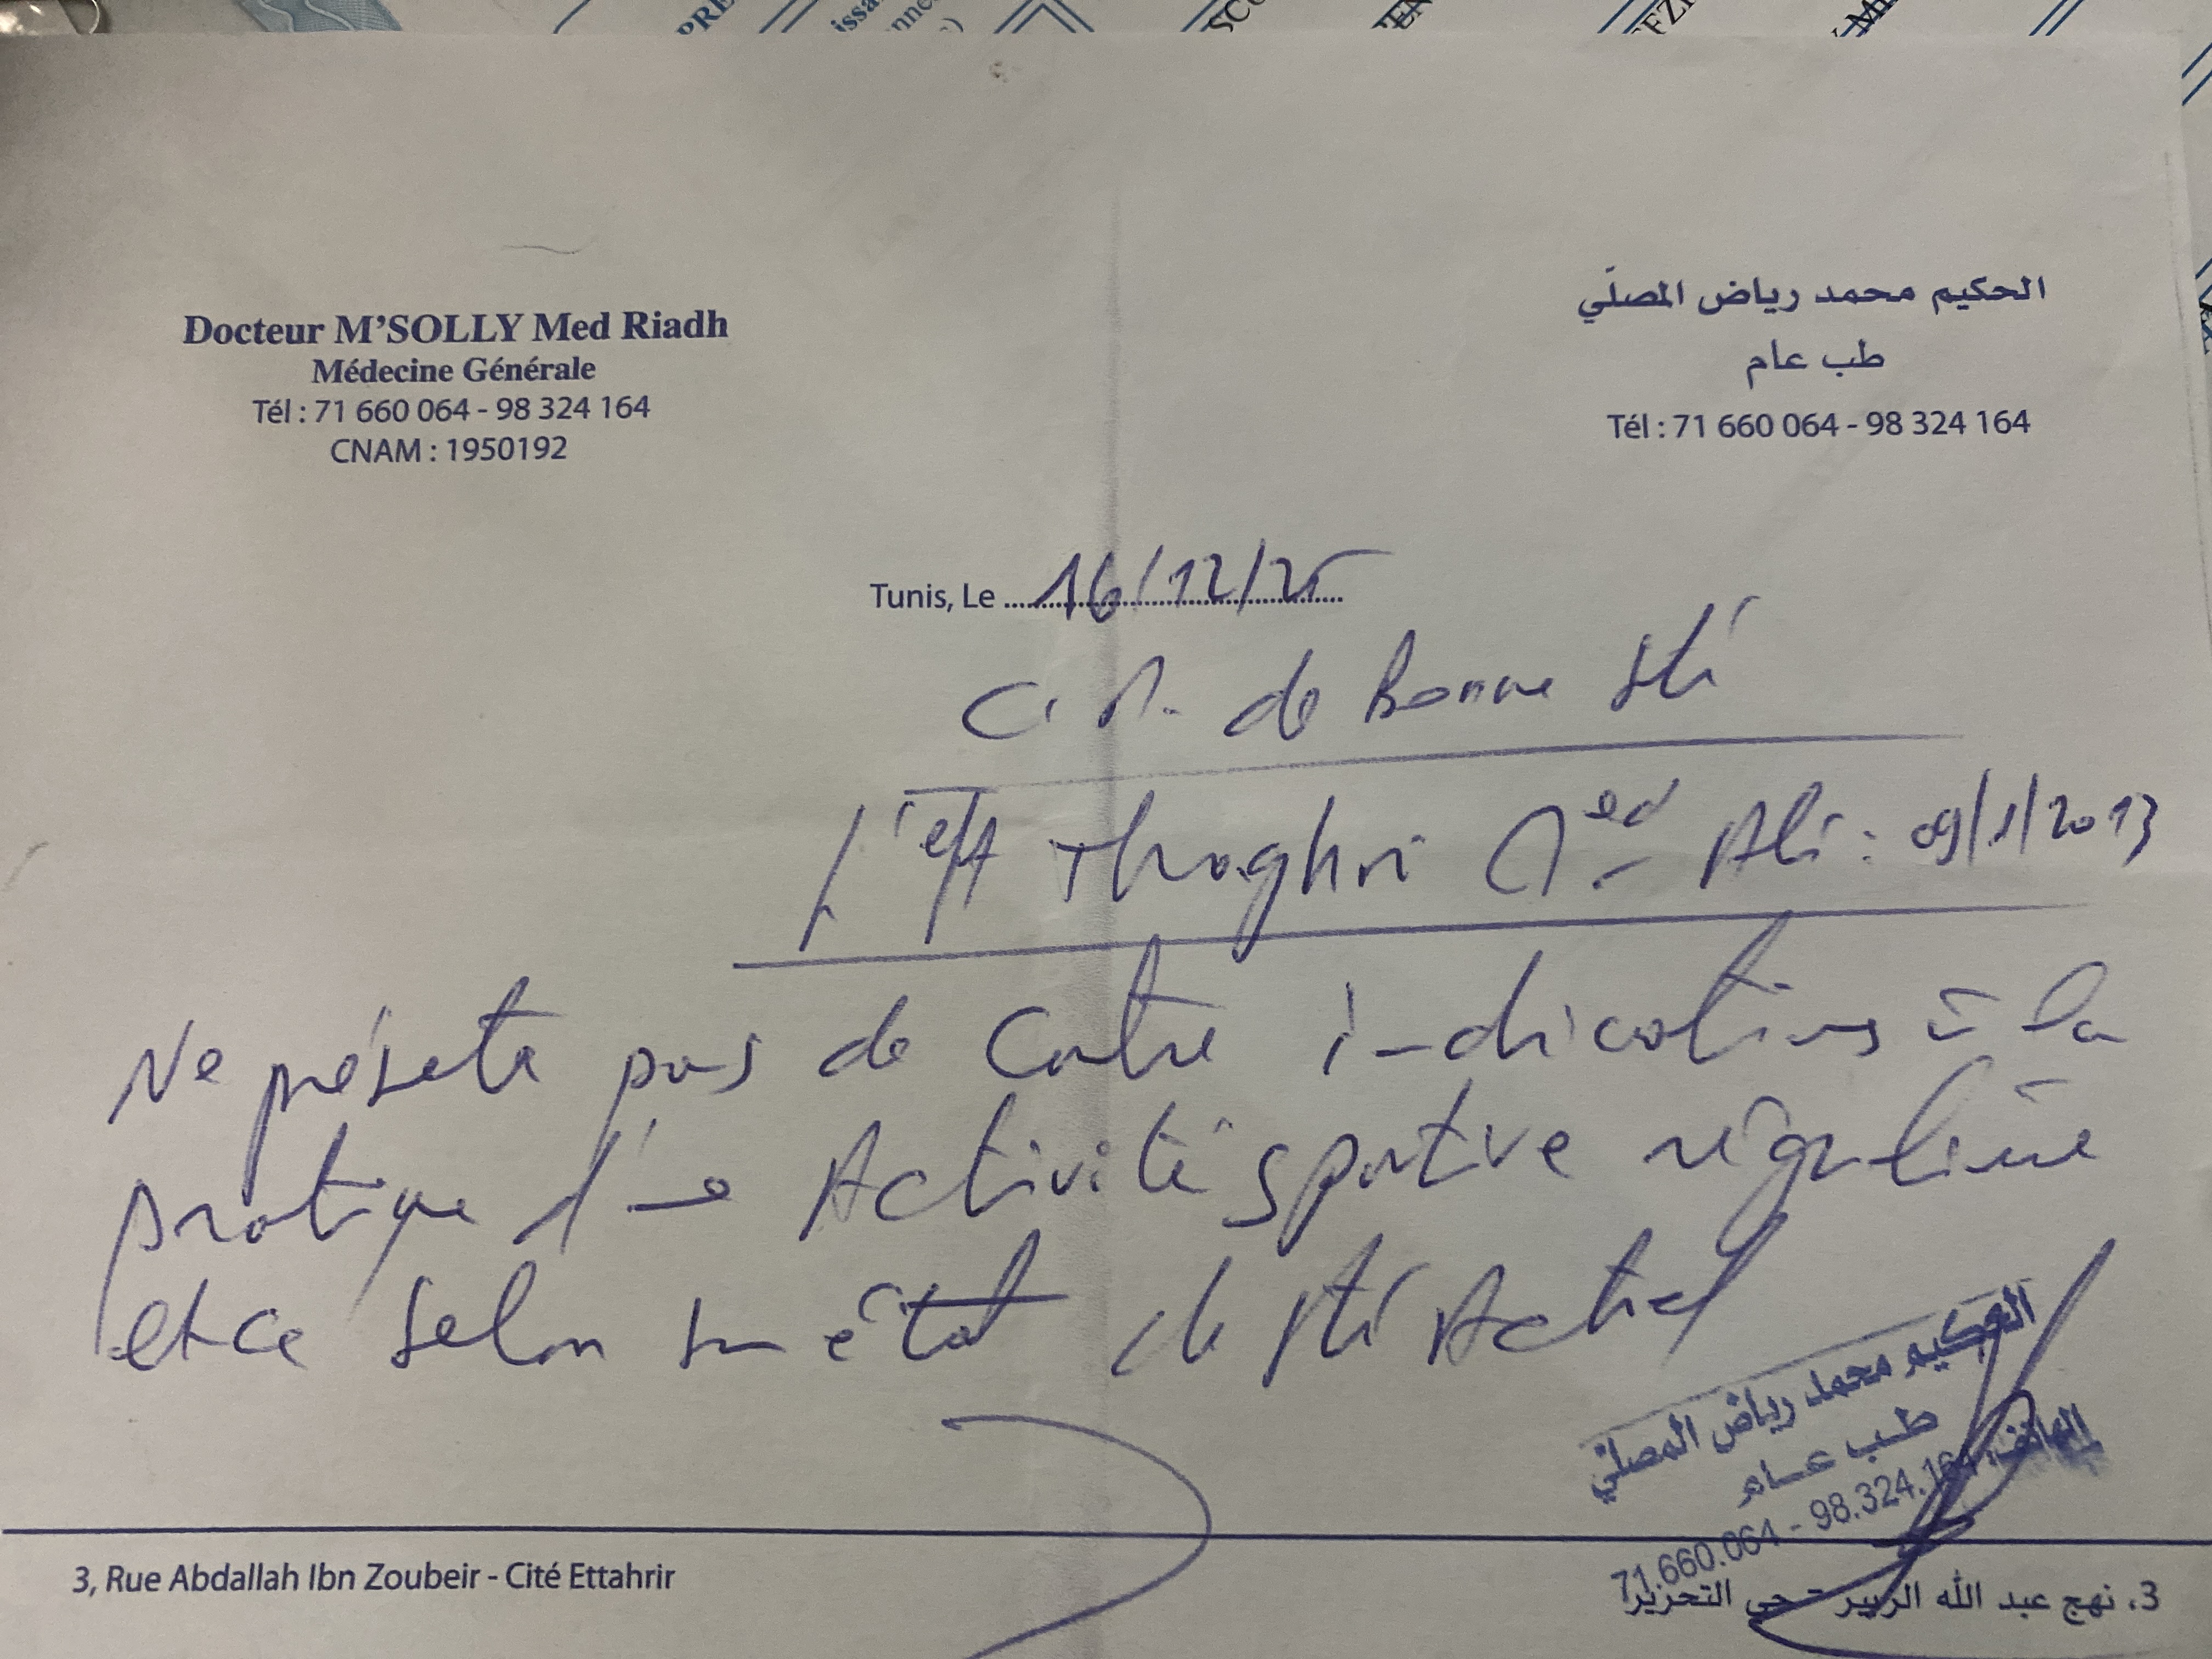 PRE
issa
nne
SC
EN
EZ
M
Docteur M'SOLLY Med Riadh
Médecine Générale
Tél : 71 660 064 - 98 324 164
CNAM : 1950192
الحكيم محمد رياض المصلّي
طب عام
Tél : 71 660 064 - 98 324 164
Tunis, Le 16/12/25
C. M. de Bonne sté
L'eft Thaghri Med Ali : 09/1/2013
Ne présente pas de Contre indications à la
pratique d'une Activité sportive régulière
et ce selon son état de sté Actuel
الحكيم محمد رياض المصلّي
طب عام
الهاتف: 71.660.064 - 98.324.164
3, Rue Abdallah Ibn Zoubeir - Cité Ettahrir
3، نهج عبد الله الزبير - حي التحرير